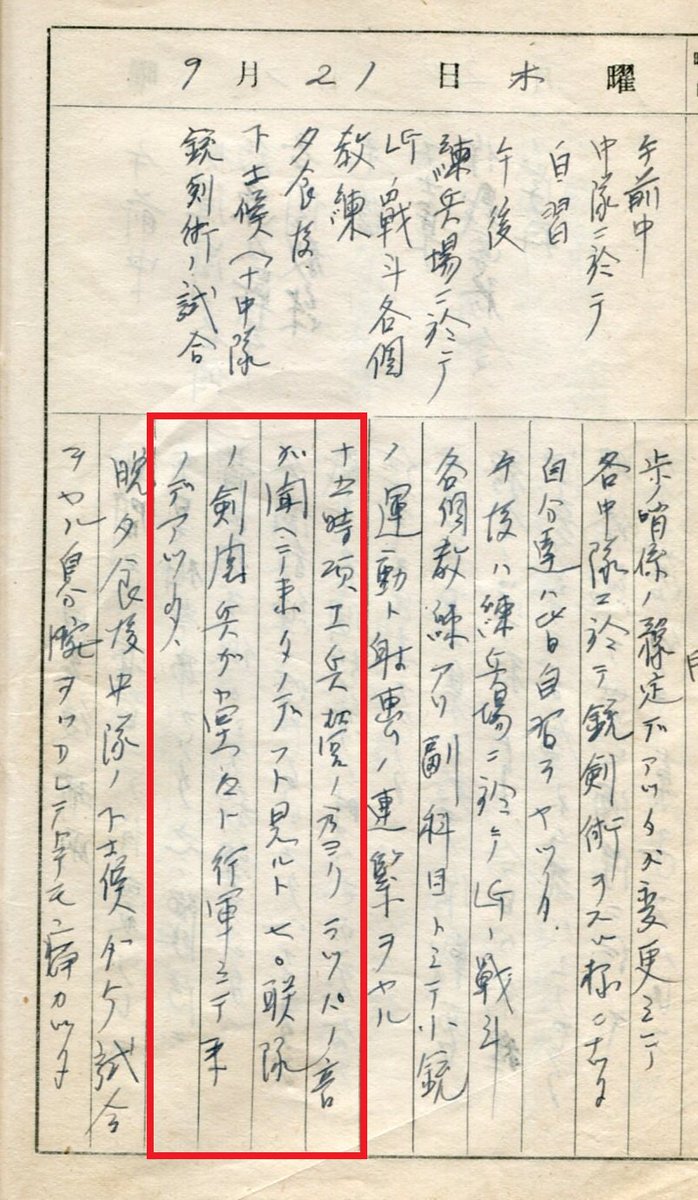 9月21日木曜
午前中
中隊ニ於テ
自習
午後
練兵場ニ於テ
戦斗各個
教練
夕食後
下士候ヘ十中隊
銃剣術ノ試合
歩哨係ノ豫定デアツタガ変更シテ
各中隊ニ於テ銃剣術ヲスル様
自分達ハ自習ヲヤツタ
午後ハ練兵場ニ於テ戦斗
各個教練アリ副科目トシテ小銃
ノ運動ト射撃ノ連繋ヲヤル
十五時頃工兵営ノ方ヨリラツパノ音
が聞ヘテ来タノデフト見ルト七〇聯隊
ノ剣兵ガ堂々ト行軍シテ来
ノデアツタ
晩夕食後中隊ノ下士候ダケ試合
ヲヤル